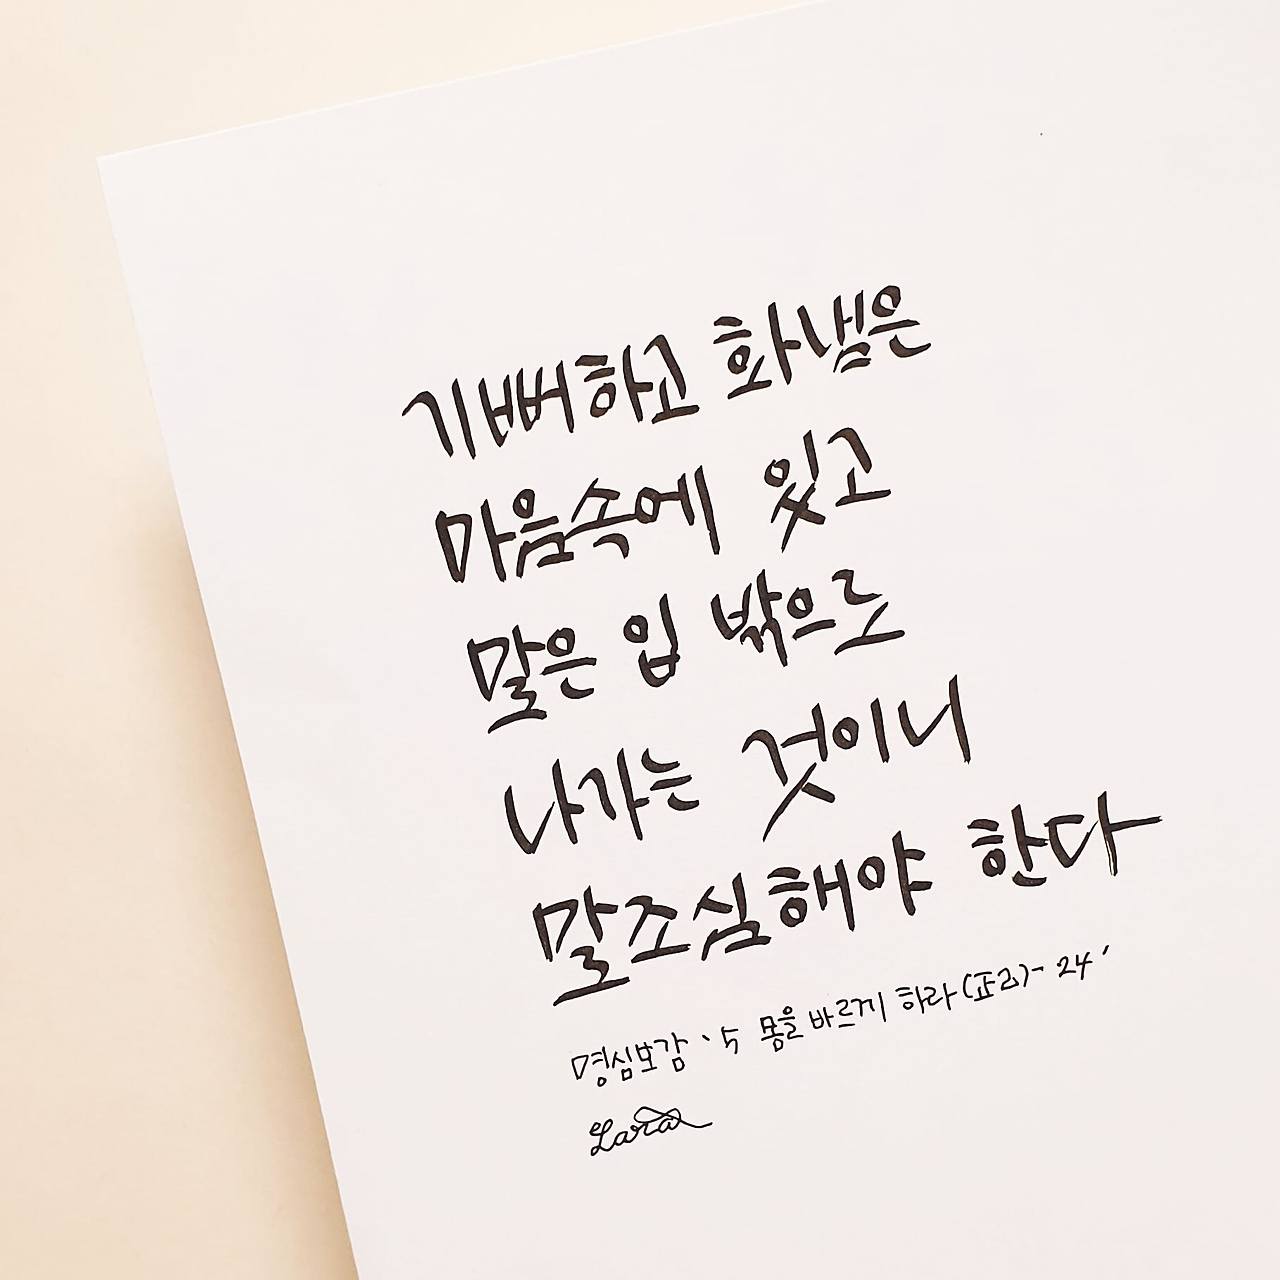 기뻐하고 화냄은
마음속에 있고
말은 입 밖으로
나가는 것이니
말조심해야 한다
명심보감 '5 몸을 바르게 하라(正己)- 24'
Lara